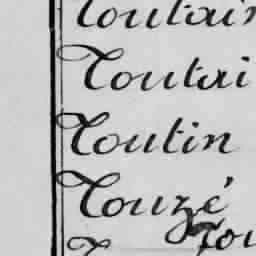 Toutain
Toutai
Toutin
Touzé
Tou